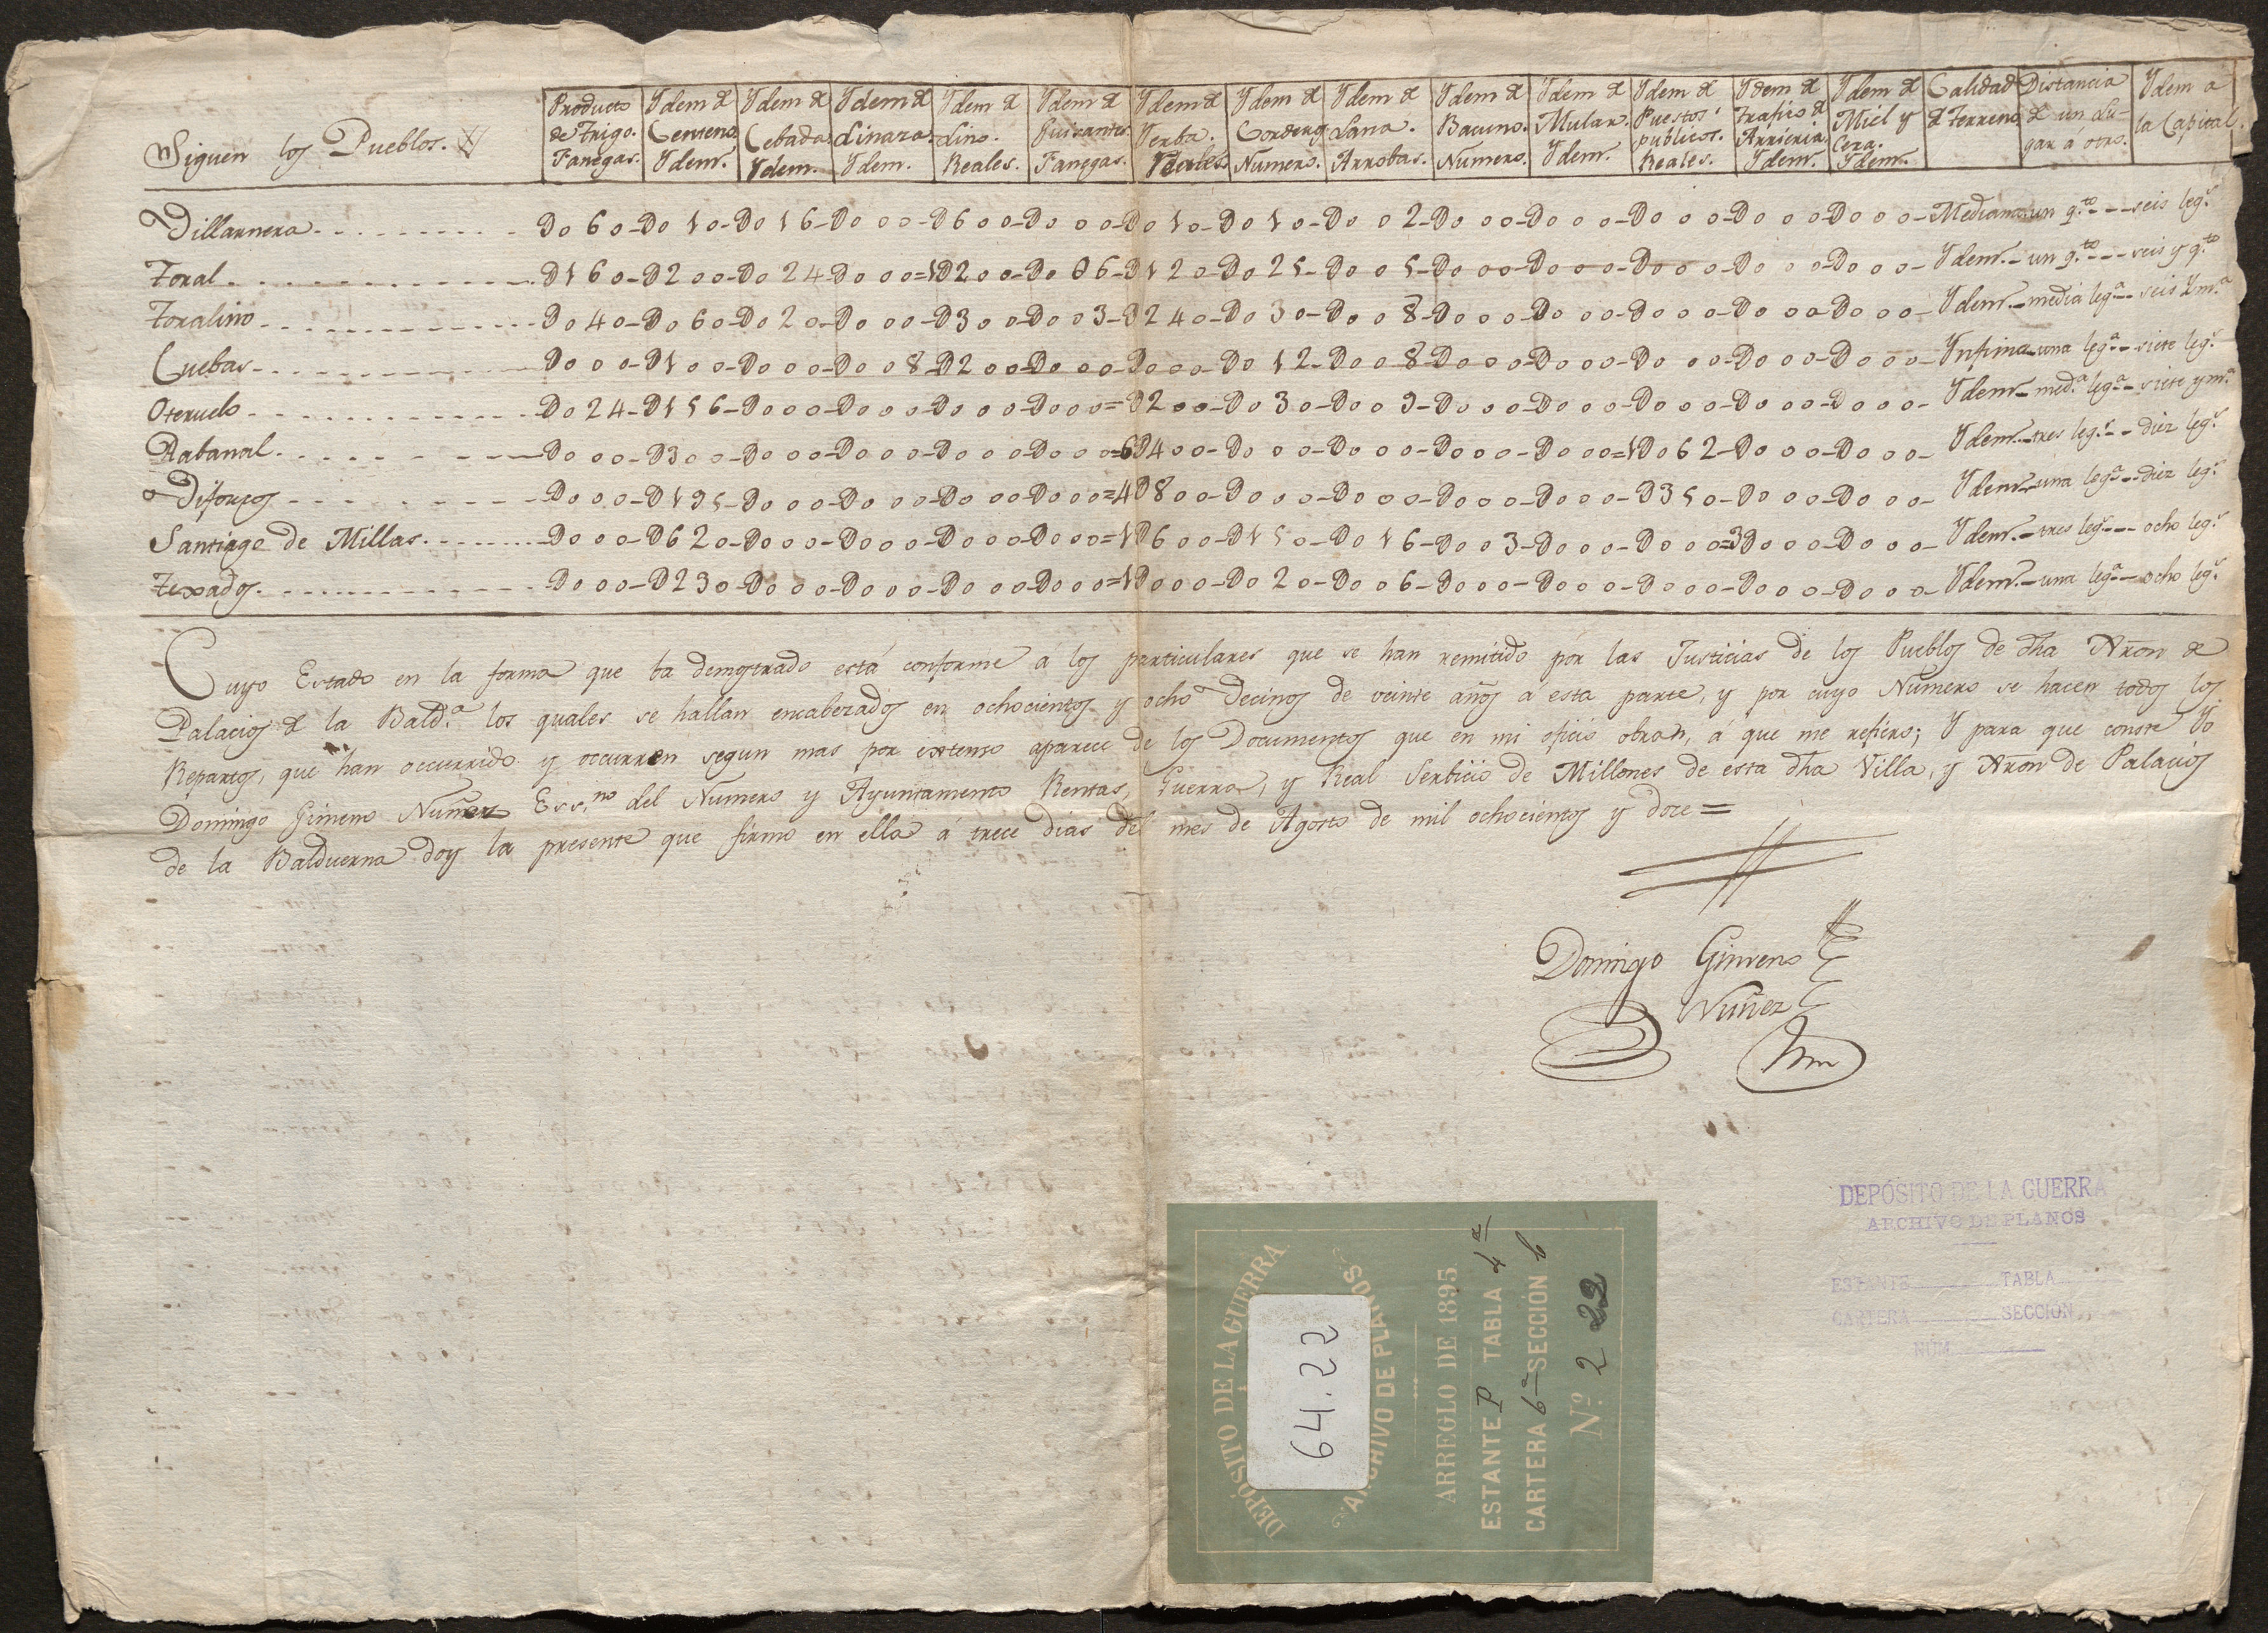 Siguen los Pueblos.
Producto de Trigo. Fanegas.
Ydem de Centeno Ydem.
Ydem de Cebada Ydem.
Ydem de Linaza. Ydem.
Ydem de Lino. Reales.
Ydem de Guisantes. Fanegas.
Ydem de Yerba. Reales
Ydem de Corderos Numero.
Ydem de Lana. Arrobas.
Ydem de Bacuno. Numero.
Ydem de Mular. Ydem.
Ydem de Puestos publicos. Reales.
Ydem de Trafico de Arrieria. Ydem.
Ydem de Miel y Cera. Ydem.
Calidad de Terreno
Distancia de un Lugar á otro.
Ydem a la Capital.
Villarnera D060-D010-D016-D000-D600-D000-D010-D010-D002-D000-D000-D000-D000-D000-Mediano-un q.to-seis leg.s
Toral D160-D200-D024-D000=1D200-D006-D120-D025-D005-D000-D000-D000-D000-D000-Ydem.-un q.to-seis y q.to
Toralino D040-D060-D020-D000-D300-D003-D240-D030-D008-D000-D000-D000-D000-D000-Ydem.-media leg.a-seis y m.a
Cuebas D000-D100-D000-D008-D200-D000-D000-D012-D008-D000-D000-D000-D000-D000-Ynfima-una leg.a-siete leg.s
Oteruelo D024-D156-D000-D000-D000-D000=D200-D030-D009-D000-D000-D000-D000-D000-Ydem-med.a leg.a-siete y m.a
Rabanal D000-D300-D000-D000-D000-D000=6D400-D000-D000-D000-D000=1D062-D000-D000-Ydem.-tres leg.s-diez leg.s
Viforcos D000-D195-D000-D000-D000-D000=4D800-D000-D000-D000-D000-D350-D000-D000-Ydem-una leg.a-diez leg.s
Santiago de Millas D000-D620-D000-D000-D000-D000=1D600-D150-D016-D003-D000-D000=3D000-D000-Ydem.-tres leg.s-ocho leg.s
Texados D000-D230-D000-D000-D000-D000=1D000-D020-D006-D000-D000-D000-D000-D000-Ydem.-una leg.a-ocho leg.s
Cuyo Estado en la forma que ba demostrado está conforme á los particulares que se han remitido por las Justicias de los Pueblos de dha Xron de
Palacios de la Bald.a los quales se hallan encabezados en ochocientos y ocho Vecinos de veinte años a esta parte, y por cuyo Numero se hacen todos los
Repartos, que han occurrido y occurren segun mas por extenso aparece de los Documentos que en mi oficio obran, á que me refiero; Y para que conste Yo
Domingo Gimeno Nuñez Ess.no del Numero y Ayuntamento Rentas, Guerra, y Real Serbicio de Millones de esta dha Villa, y Xron de Palacios
de la Balduerna doy la presente que firmo en ella á trece dias del mes de Agosto de mil ochocientos y doce=
Domingo Gimeno
Nuñez
DEPÓSITO DE LA GUERRA
ARCHIVO DE PLANOS
ESTANTE TABLA
CARTERA SECCIÓN
NÚM
DEPÓSITO DE LA GUERRA
ARCHIVO DE PLANOS
64.22
ARREGLO DE 1895
ESTANTE P TABLA 4a
CARTERA 6a SECCIÓN b
Nº. 2 22